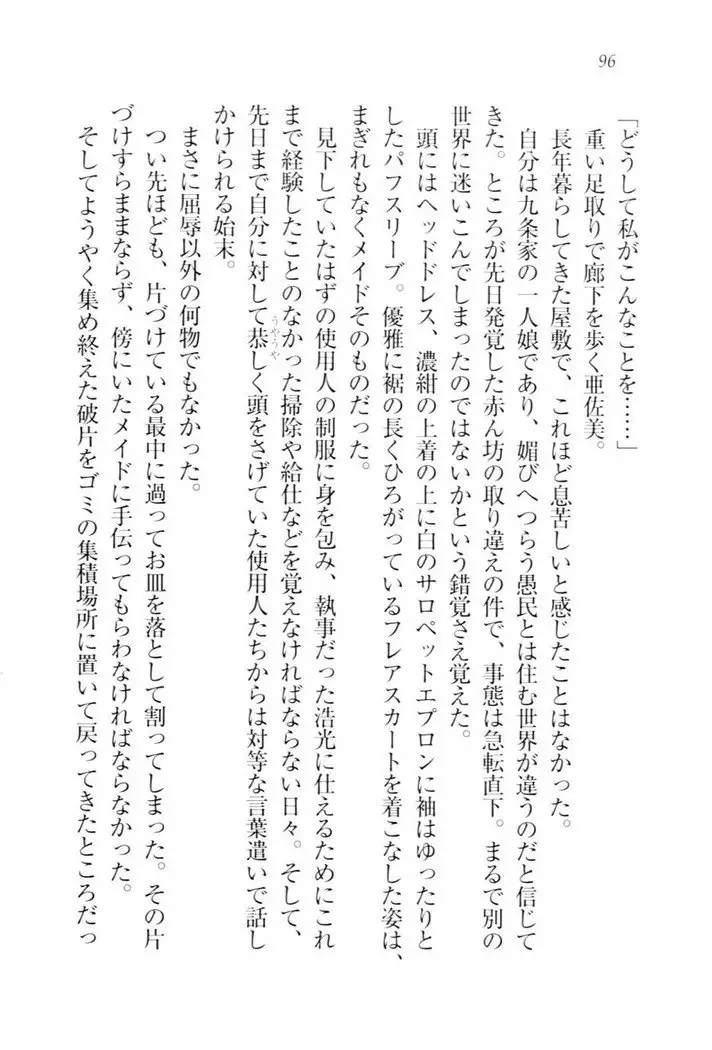 96
「どうして私がこんなことを……」
重い足取りで廊下を歩く亜佐美。
長年暮らしてきた屋敷で、これほど息苦しいと感じたことはなかった。
自分は九条家の一人娘であり、媚びへつらう愚民とは住む世界が違うのだと信じて
きた。ところが先日発覚した赤ん坊の取り違えの件で、事態は急転直下。まるで別の
世界に迷いこんでしまったのではないかという錯覚さえ覚えた。
頭にはヘッドドレス、濃紺の上着の上に白のサロペットエプロンに袖はゆったりと
したパフスリーブ。優雅に裾の長くひろがっているフレアスカートを着こなした姿は、
まぎれもなくメイドそのものだった。
見下していたはずの使用人の制服に身を包み、執事だった浩光に仕えるためにこれ
まで経験したことのなかった掃除や給仕などを覚えなければならない日々。そして、
先日まで自分に対して恭しく頭をさげていた使用人たちからは対等な言葉遣いで話し
うやうや
かけられる始末。
まさに屈辱以外の何物でもなかった。
つい先ほども、片づけている最中に過ってお皿を落として割ってしまった。その片
づけすらままならず、傍にいたメイドに手伝ってもらわなければならなかった。
そしてようやく集め終えた破片をゴミの集積場所に置いて戻ってきたところだっ